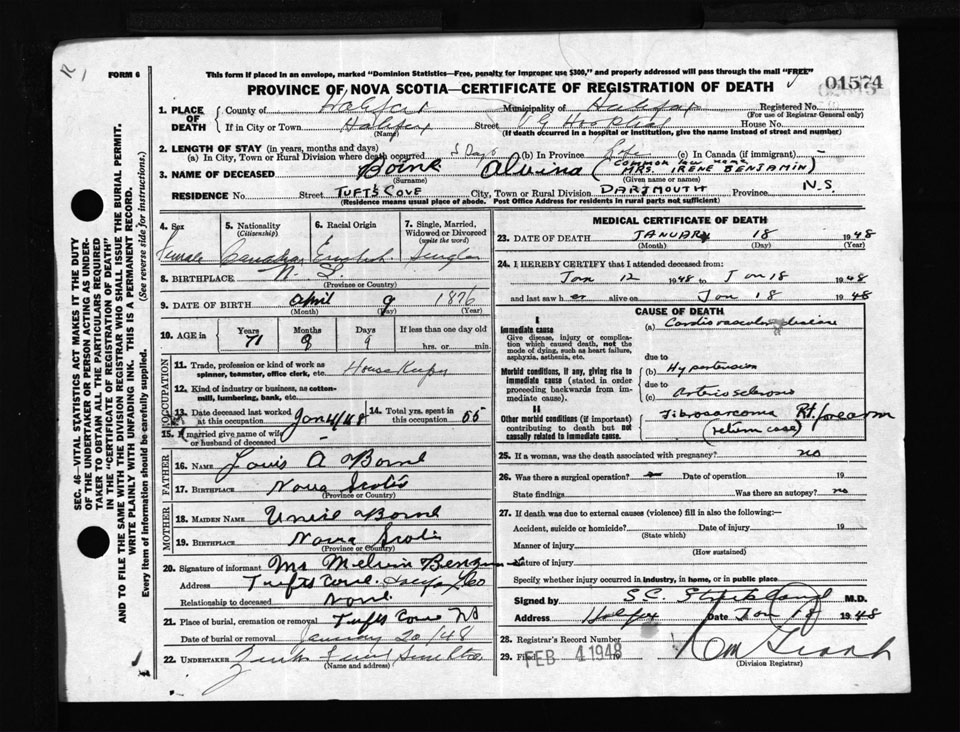 FORM 6
This form if placed in an envelope, marked "Dominion Statistics—Free, penalty for improper use $300," and properly addressed will pass through the mail "FREE"
01574
PROVINCE OF NOVA SCOTIA—CERTIFICATE OF REGISTRATION OF DEATH
1. PLACE OF DEATH
County of Halifax Municipality of Halifax Registered No.
(For use of Registrar General only)
If in City or Town Halifax Street V G Hospital House No.
(Name) (If death occurred in a hospital or institution, give the name instead of street and number)
2. LENGTH OF STAY (in years, months and days)
(a) In City, Town or Rural Division where death occurred 5 Days (b) In Province Life (c) In Canada (if immigrant)
3. NAME OF DECEASED Alvina (COMMON LAW NAME MRS. IRENE BENJAMIN)
(Surname) (Given name or names)
RESIDENCE No. Street TUFT'S COVE City, Town or Rural Division DARTMOUTH Province N.S.
(Residence means usual place of abode. Post Office Address for residents in rural parts not sufficient)
4. Sex
Female
5. Nationality
(Citizenship)
Canadian
6. Racial Origin
English
7. Single, Married, Widowed or Divorced
(write the word)
Single
8. BIRTHPLACE N. S.
(Province or Country)
9. DATE OF BIRTH April 9 1876
(Month) (Day) (Year)
10. AGE in Years Months Days If less than one day old
71 9 9 hrs. or min.
OCCUPATION
11. Trade, profession or kind of work as spinner, teamster, office clerk, etc. House Keeper
12. Kind of industry or business, as cotton-mill, lumbering, bank, etc.
13. Date deceased last worked at this occupation Jan 4/48
14. Total yrs. spent in this occupation 55
15. If married give name of wife or husband of deceased
FATHER
16. NAME Louis A
17. BIRTHPLACE Nova Scotia
(Province or Country)
MOTHER
18. MAIDEN NAME
19. BIRTHPLACE Nova Scotia
(Province or Country)
20. Signature of informant Mrs Melvin
Address Tufts Cove Halifax Co
Relationship to deceased None
21. Place of burial, cremation or removal Tufts Cove NS
Date of burial or removal January 20/48
22. UNDERTAKER
(Name and address)
MEDICAL CERTIFICATE OF DEATH
23. DATE OF DEATH JANUARY 18 1948
(Month) (Day) (Year)
24. I HEREBY CERTIFY that I attended deceased from:
Jan 12 1948 to Jan 18 1948
and last saw her alive on Jan 18 1948
CAUSE OF DEATH
I
Immediate cause
Give disease, injury or complication which caused death, not the mode of dying, such as heart failure, asphyxia, asthenia, etc.
(a) Cardiovascular disease
due to
Morbid conditions, if any, giving rise to immediate cause (stated in order proceeding backwards from immediate cause).
(b) Hypertension
due to
(c) Arteriosclerosis
II
Other morbid conditions (if important) contributing to death but not causally related to immediate cause.
Fibrosarcoma Rt. forearm
(return case)
25. If a woman, was the death associated with pregnancy? no
26. Was there a surgical operation? Date of operation 19
State findings Was there an autopsy? no
27. If death was due to external causes (violence) fill in also the following:—
Accident, suicide or homicide? Date of injury 19
(State which)
Manner of injury
(How sustained)
Nature of injury
Specify whether injury occurred in industry, in home, or in public place
Signed by M.D.
Address Halifax Date Jan 18 1948
28. Registrar's Record Number
29. Filed FEB 4 1948
(Division Registrar)
SEC. 46—VITAL STATISTICS ACT MAKES IT THE DUTY
OF THE UNDERTAKER OR PERSON ACTING AS UNDER-
TAKER TO OBTAIN ALL THE PARTICULARS REQUIRED
IN THE "CERTIFICATE OF REGISTRATION OF DEATH"
AND TO FILE THE SAME WITH THE DIVISION REGISTRAR WHO SHALL ISSUE THE BURIAL PERMIT.
WRITE PLAINLY WITH UNFADING INK. THIS IS A PERMANENT RECORD.
Every item of information should be carefully supplied. (See reverse side for instructions.)